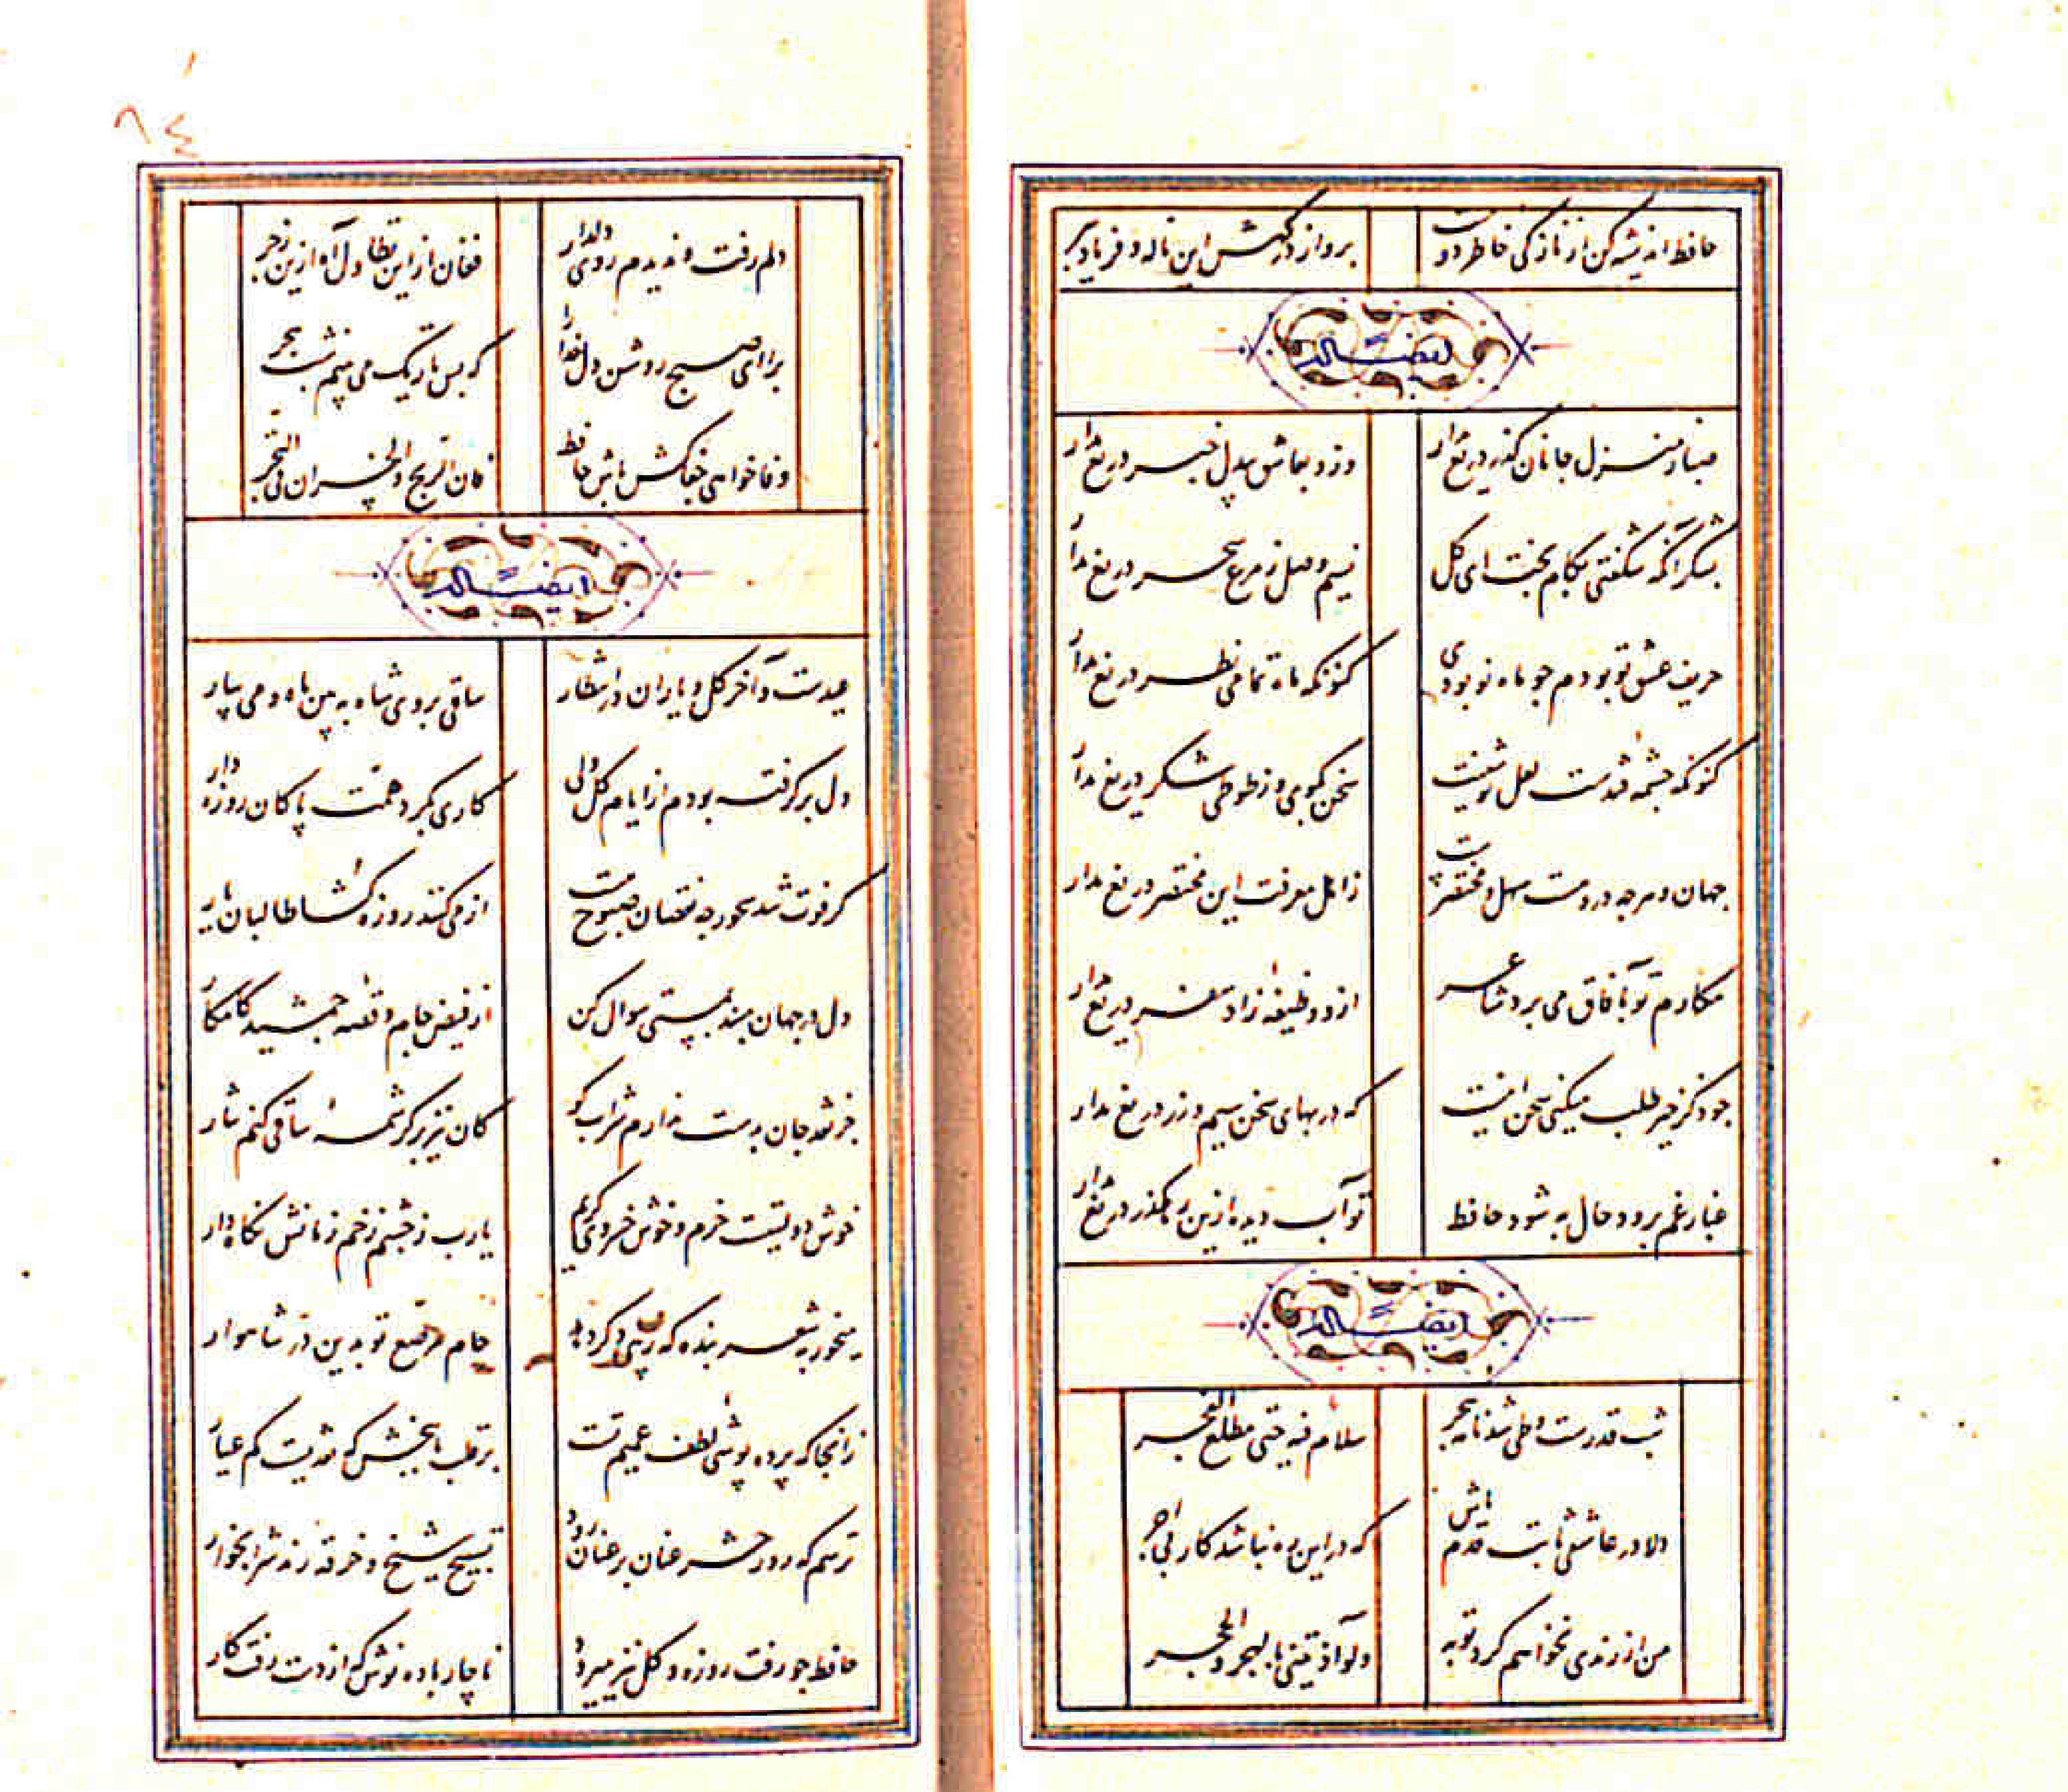 حافظ اندیشه کن از نازکی خاطر دوست
برو از درگهش این ناله و فریاد ببر
ایضاً له
صبا ز منزل جانان گذر دریغ مدار
وزو بعاشق بیدل خبر دریغ مدار
بشکر آنکه شکفتی بکام بخت ای گل
نسیم وصل ز مرغ سحر دریغ مدار
حریف عشق تو بودم چو ماه نو بودی
کنونکه ماه تمامی نظر دریغ مدار
کنونکه چشمه قندست لعل نوشینت
سخن بگوی و ز طوطی شکر دریغ مدار
جهان و هرچه درو هست سهل و مختصرست
ز اهل معرفت این مختصر دریغ مدار
مکارم تو بآفاق می برد شاعر
ازو وظیفه و زاد سفر دریغ مدار
چو ذکر خیر طلب میکنی سخن اینست
که در بهای سخن سیم و زر دریغ مدار
غبار غم برود حال به شود حافظ
تو آب دیده ازین رهگذر دریغ مدار
ایضاً له
شب قدرست و طی شد نامه هجر
سلام فیه حتی مطلع الفجر
دلا در عاشقی ثابت قدم باش
که در این ره نباشد کار بی اجر
من از رندی نخواهم کرد توبه
ولو آذیتنی بالهجر و الحجر
٨٤
دلم رفت و ندیدم روی دلدار
فغان از این تطاول آه ازین زجر
برآ ای صبح روشن دل خدا را
که بس تاریک می بینم شب هجر
وفا خواهی جفاکش باش حافظ
فان الربح و الخسران فی التجر
ایضاً له
عیدست و آخر گل و یاران در انتظار
ساقی بروی شاه ببین ماه و می بیار
دل برگرفته بودم از ایام گل ولی
کاری بکرد همت پاکان روزه دار
گر فوت شد سحور چه نقصان صبوح هست
از می کنند روزه گشا طالبان یار
دل در جهان مبند بمستی سوال کن
از فیض جام و قصه جمشید کامکار
جز نقد جان بدست ندارم شراب کو
کان نیز بر کرشمه ساقی کنم نثار
خوش دولتیست خرم و خوش خسروی کریم
یارب ز چشم زخم زمانش نگاه دار
می خور به شعر بنده که زیبی دگر دهد
جام مرصع تو بدین در شاهوار
زانجا که پرده پوشی لطف عمیم تست
بر قلب ما ببخش که نقدیست کم عیار
ترسم که روز حشر عنان بر عنان رود
تسبیح شیخ و خرقه رند شرابخوار
حافظ چو رفت روزه و گل نیز میرود
ناچار باده نوش که از دست رفت کار